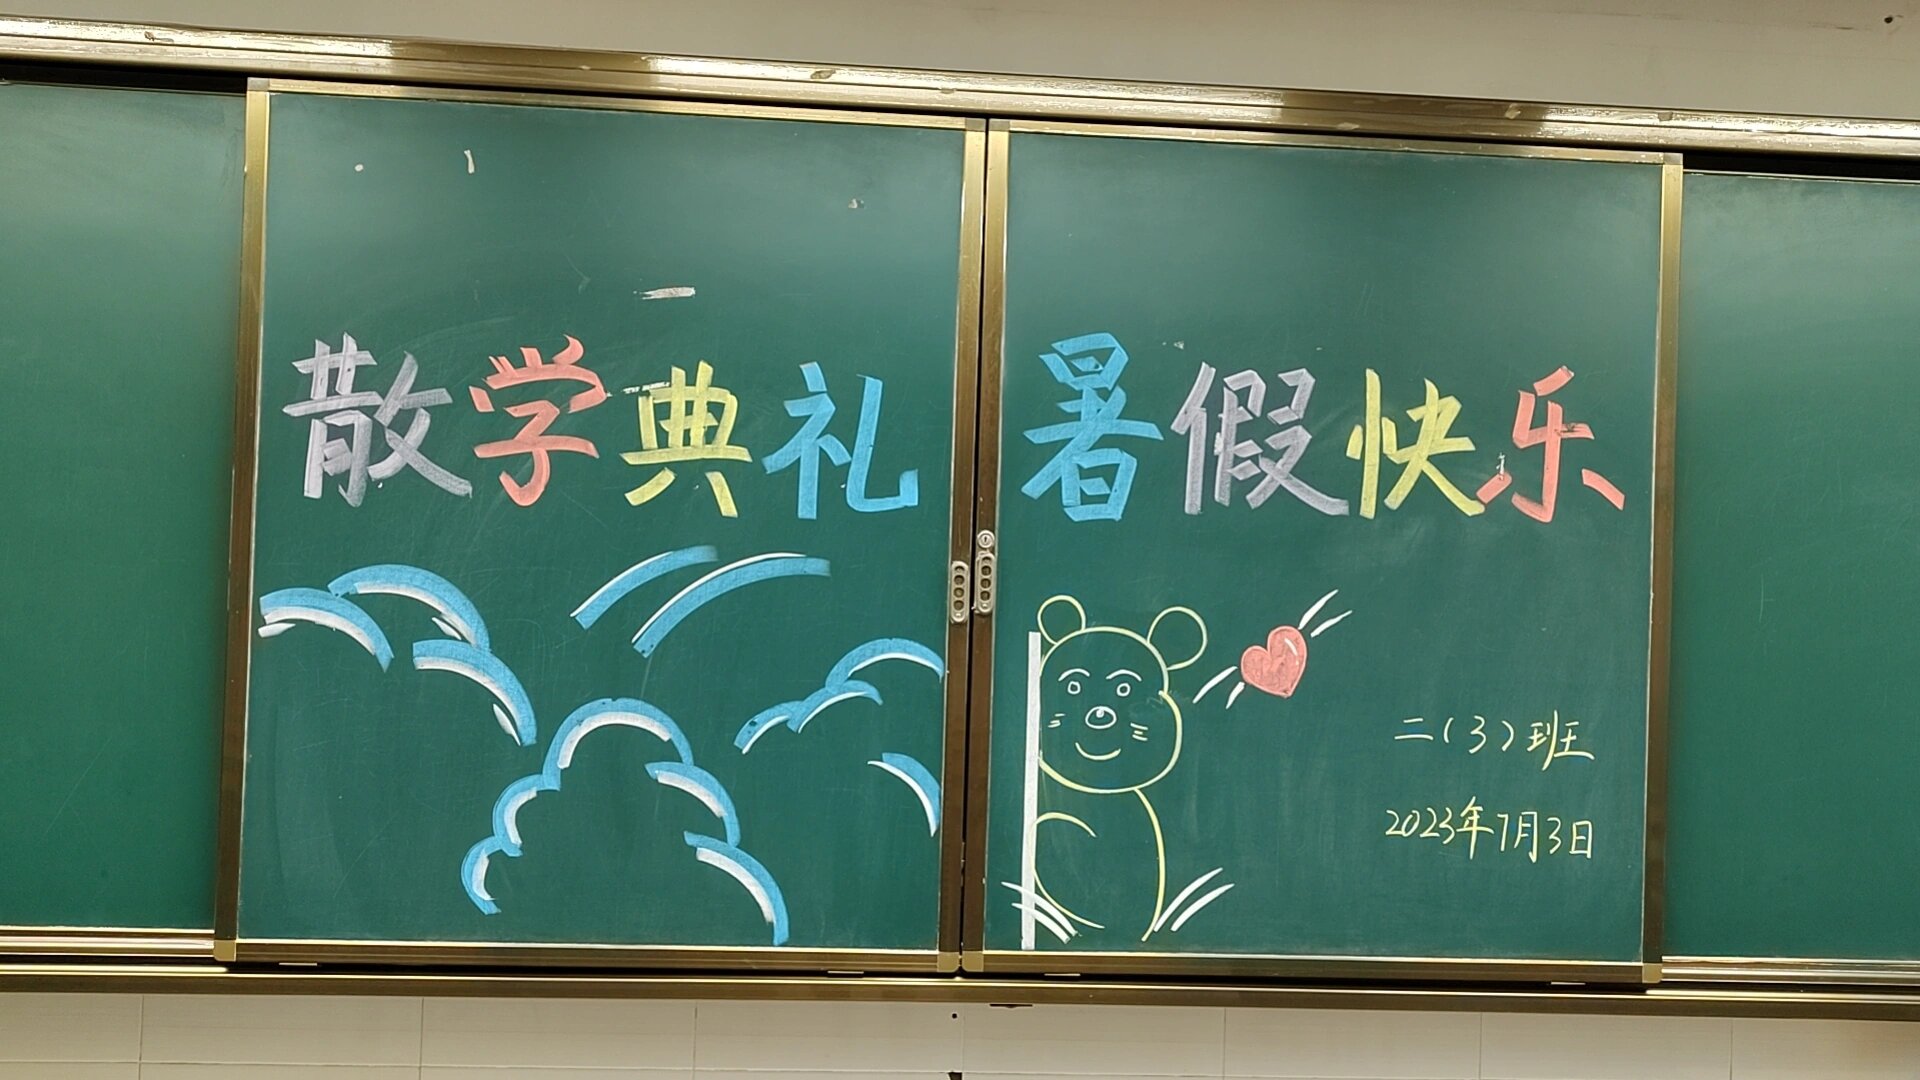 散学典礼 暑假快乐
二(3)班
2023年7月3日